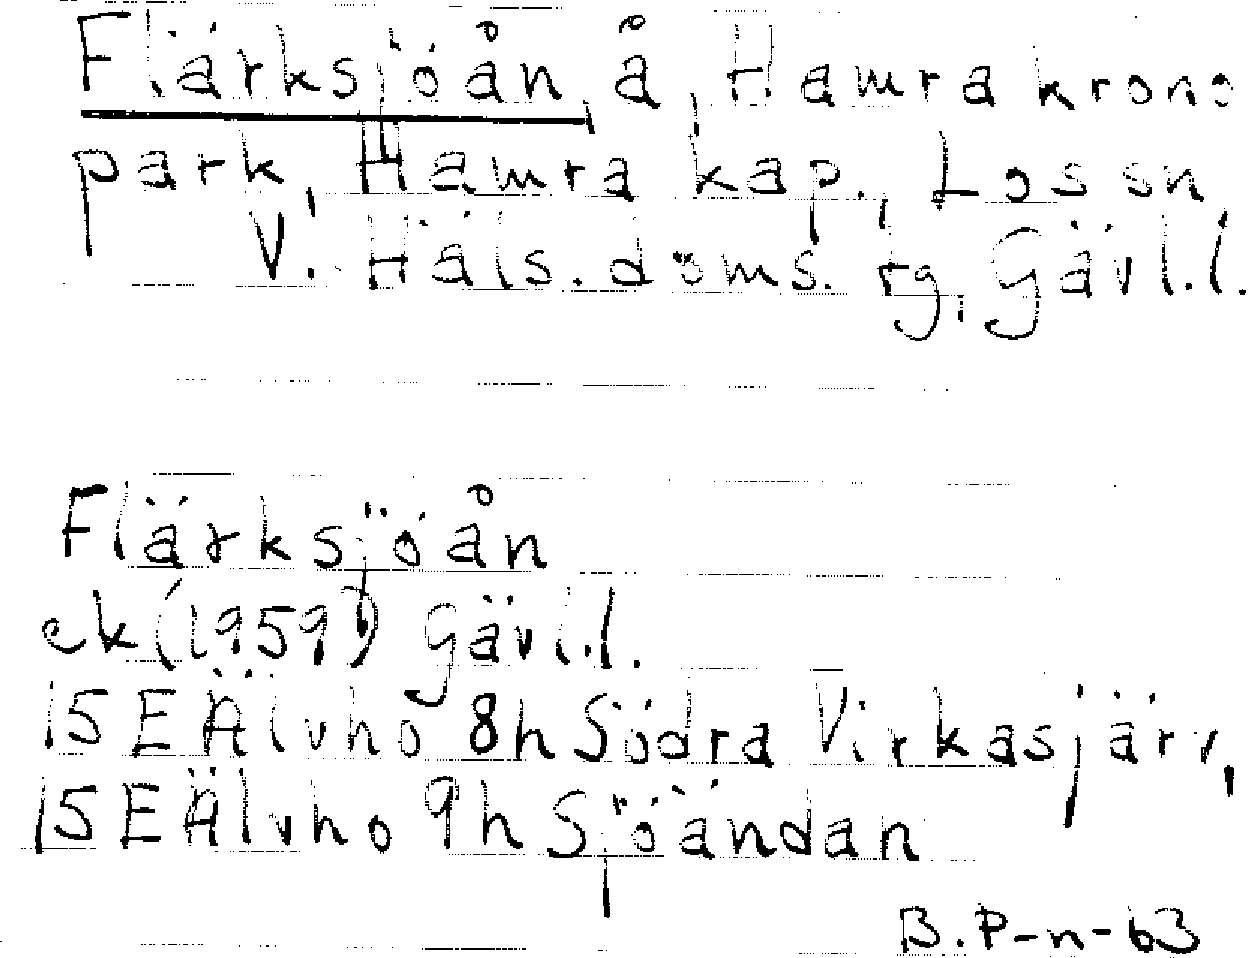 Flärksjöån, å, Hamra krono
park, Hamra kap., Los sn
V. Häls. doms. tg, Gävl.l.
Flärksjöån
ek (1959) Gävl.l.
15 E Älvho 8h Södra Virkasjärv,
15 E Älvho 9h Sjöändan
B.P-n-63